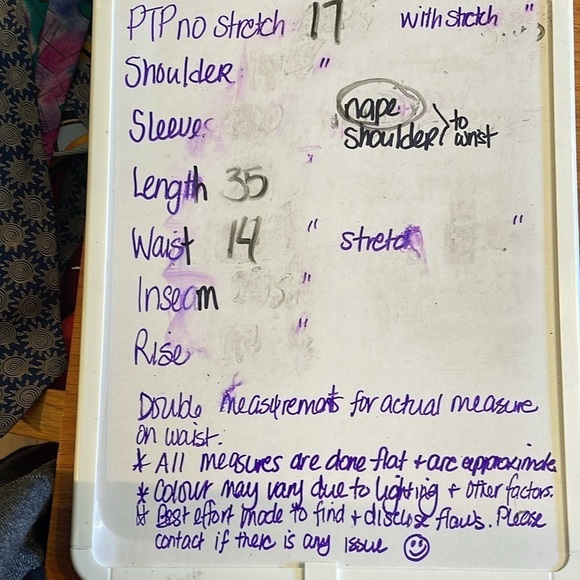 PTP no stretch 17 with stretch "
Shoulder "
Sleeves nape shoulder to wrist
Length 35 "
Waist 14 " stretch "
Inseam "
Rise "
Double measurements for actual measure
on waist.
* All measures are done flat + are approximate
* Colour may vary due to lighting + other factors.
* Best effort made to find + disclose flaws. Please
contact if there is any issue ☺